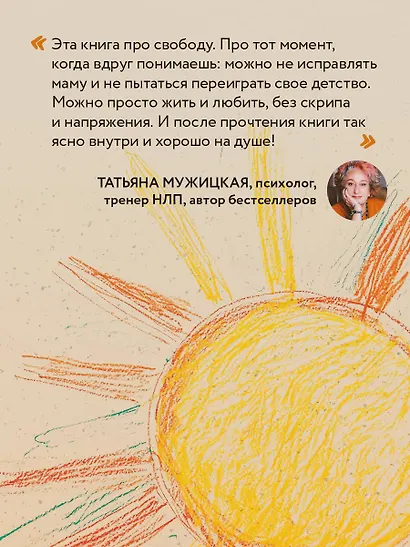 « Эта книга про свободу. Про тот момент,
когда вдруг понимаешь: можно не исправлять
маму и не пытаться переиграть свое детство.
Можно просто жить и любить, без скрипа
и напряжения. И после прочтения книги так
ясно внутри и хорошо на душе! »
ТАТЬЯНА МУЖИЦКАЯ, психолог,
тренер НЛП, автор бестселлеров